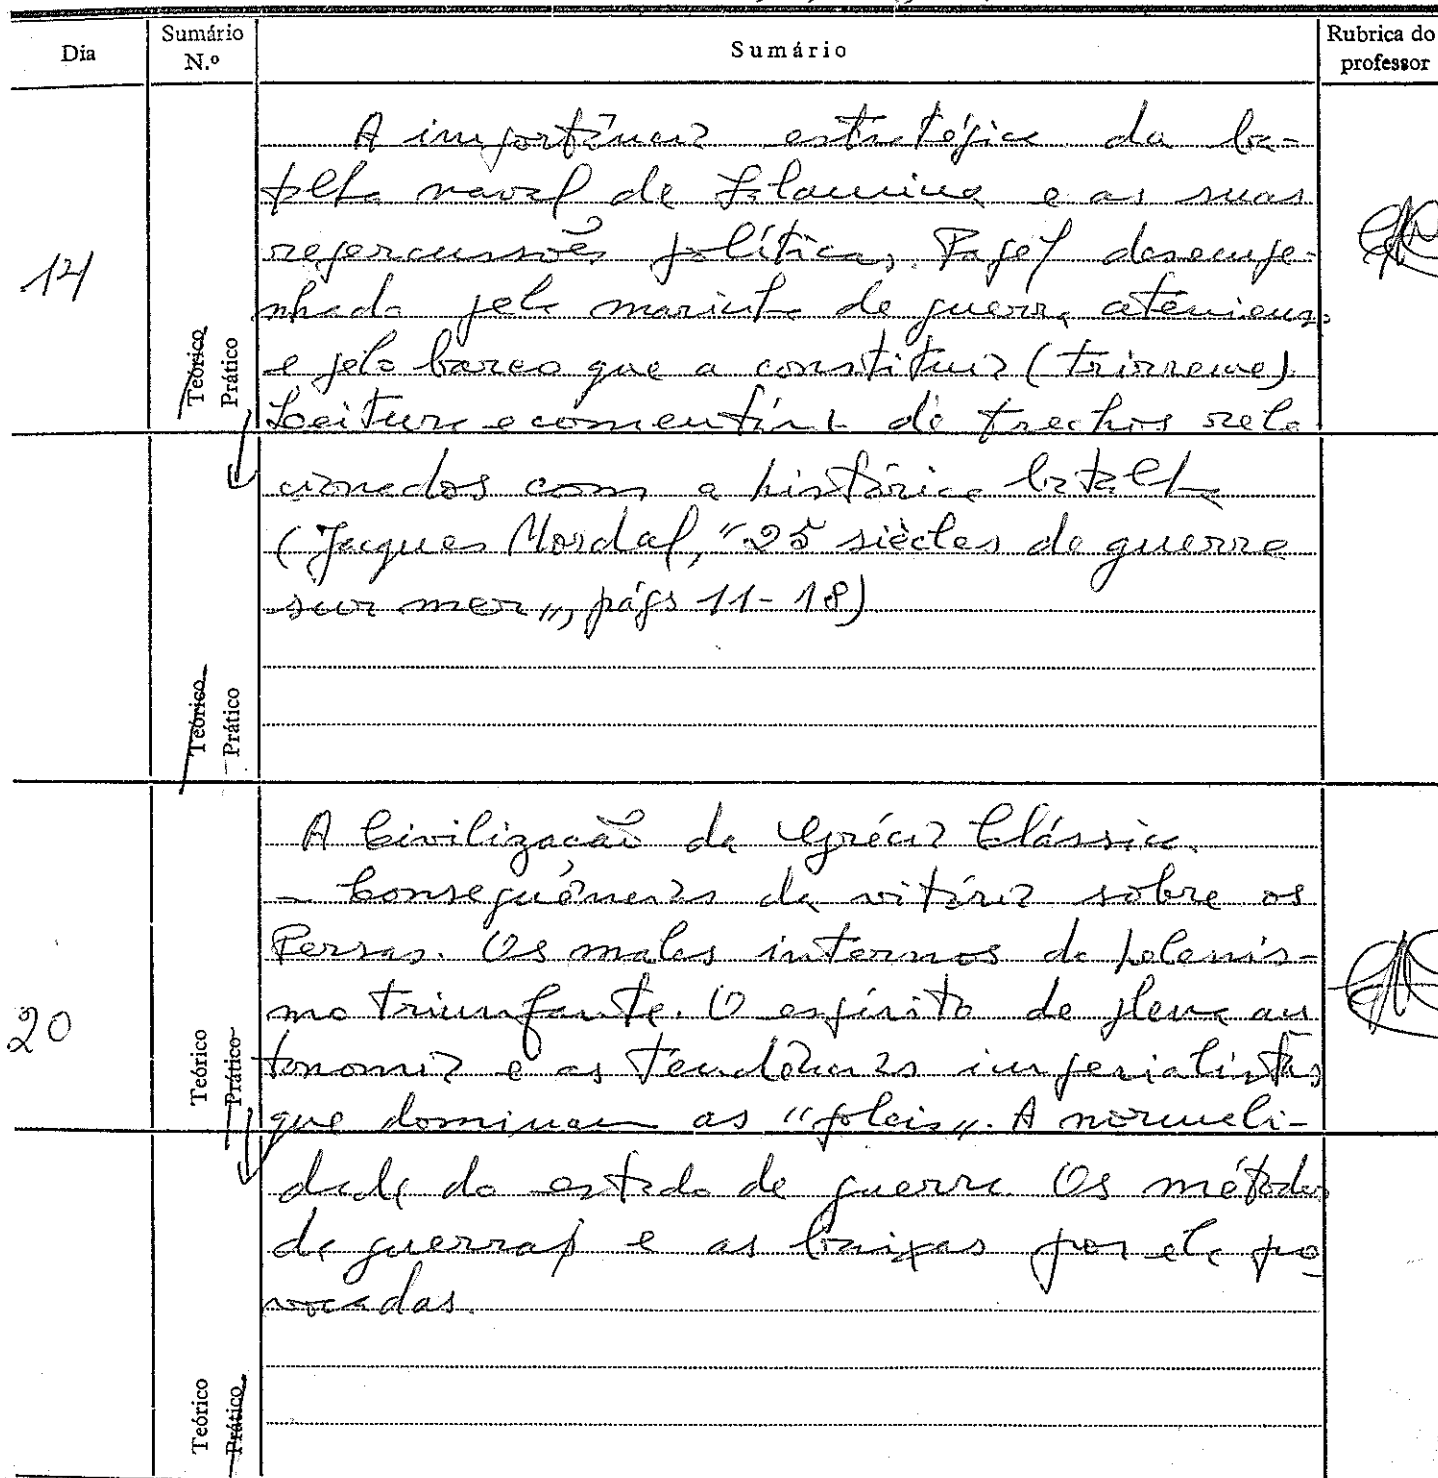 Dia
Sumário N.º
Sumário
Rubrica do professor
14
Teórico
Prático
A importância estratégica da ba-
talha naval de Salamina e as suas
repercussões políticas. Papel desempe-
nhado pela marinha de guerra ateniense
e pelo barco que a constituia (trirreme).
Leitura e comentário de trechos rela
cionados com a histórica batalha
(Jacques Mordal, "25 siècles de guerre
sur mer", págs 11-18)
Teórico
Prático
20
Teórico
Prático
A Civilização da Grécia Clássica.
- Consequências da vitória sobre os
Persas. Os males internos do helenis-
mo triunfante. O espírito de plena au
tonomia e as tendências imperialistas
que dominam as "poleis". A normali-
dade do estado de guerra. Os métodos
de guerra e as baixas por ela pro
vocadas.
Teórico
Prático